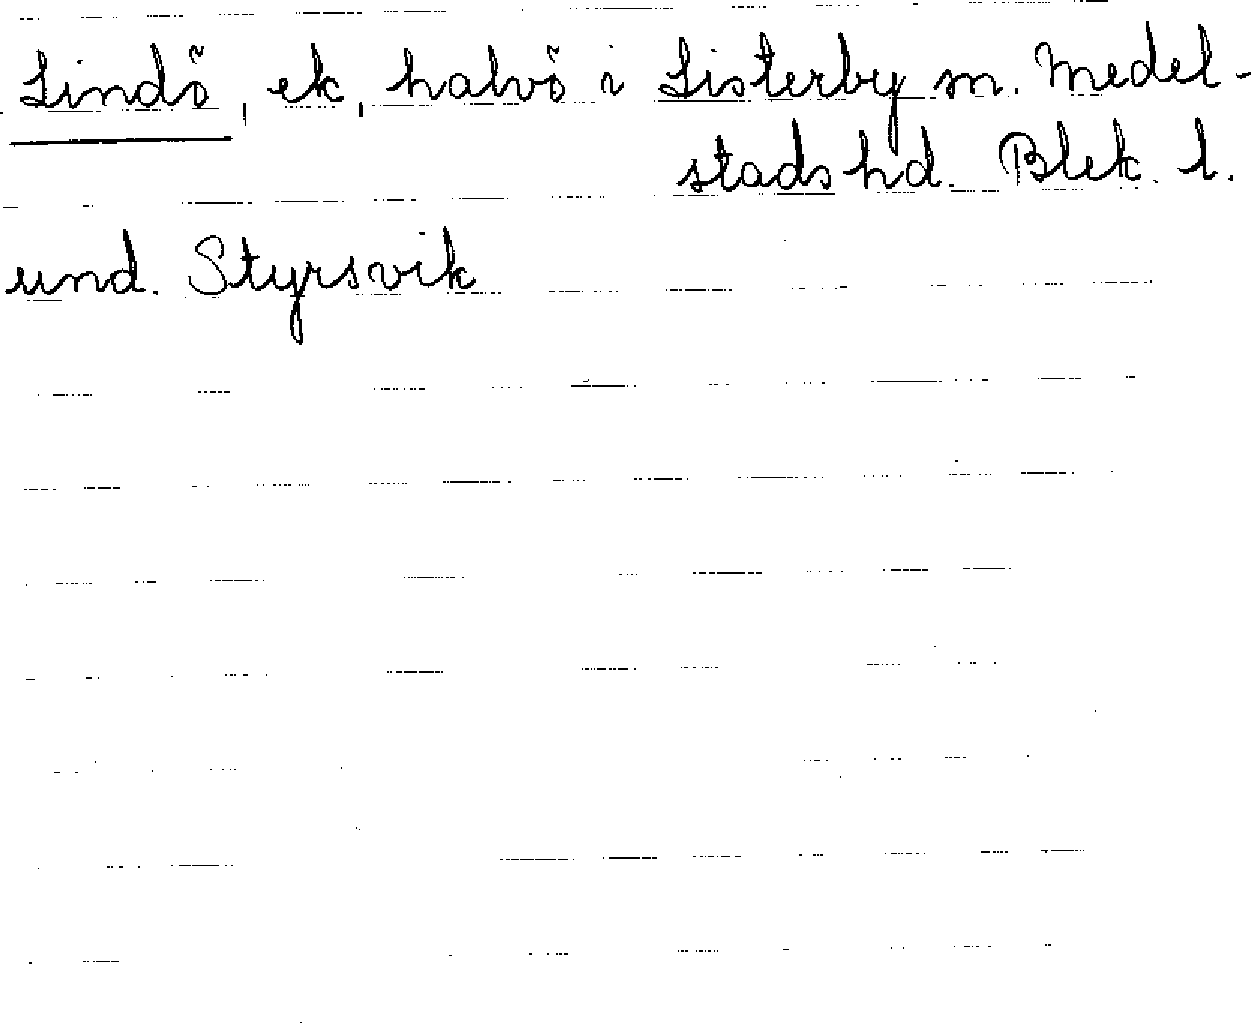 Lindö, ek, halvö i Listerby sn. Medel-
stads hd. Blek. l.
und. Styrsvik